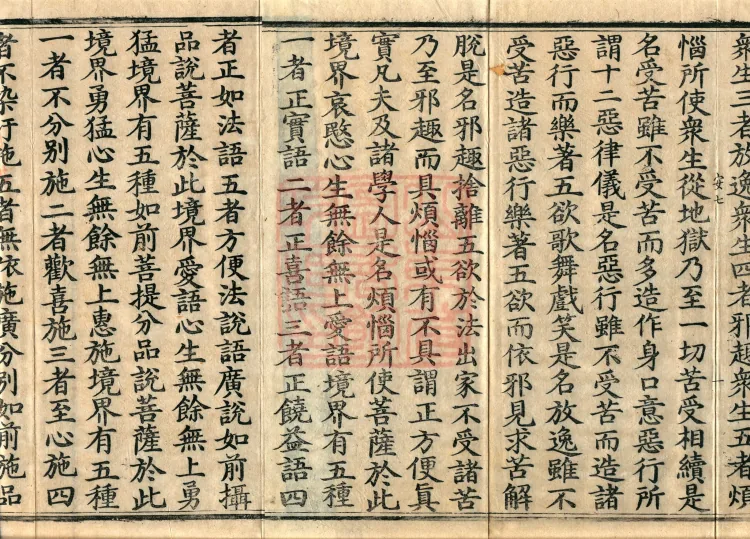 衆生三者放逸衆生四者邪趣衆生五者煩
安七
惱所使衆生從地獄乃至一切苦受相續是
名受苦雖不受苦而多造作身口意惡行所
謂十二惡律儀是名惡行雖不受苦而造諸
惡行而樂著五欲歌舞戲笑是名放逸雖不
受苦造諸惡行樂著五欲而依邪見求苦解
脫是名邪趣捨離五欲於法出家不受諸苦
乃至邪趣而具煩惱或有不具謂正方便眞
實凡夫及諸學人是名煩惱所使菩薩於此
境界哀愍心生無餘無上愛語境界有五種
一者正實語二者正喜語三者正饒益語四
者正如法語五者方便法說語廣說如前攝
品說菩薩於此境界愛語心生無餘無上勇
猛境界有五種如前菩提分品說菩薩於此
境界勇猛心生無餘無上惠施境界有五種
一者不分別施二者歡喜施三者至心施四
者不染汙施五者無依施廣分別如前施品